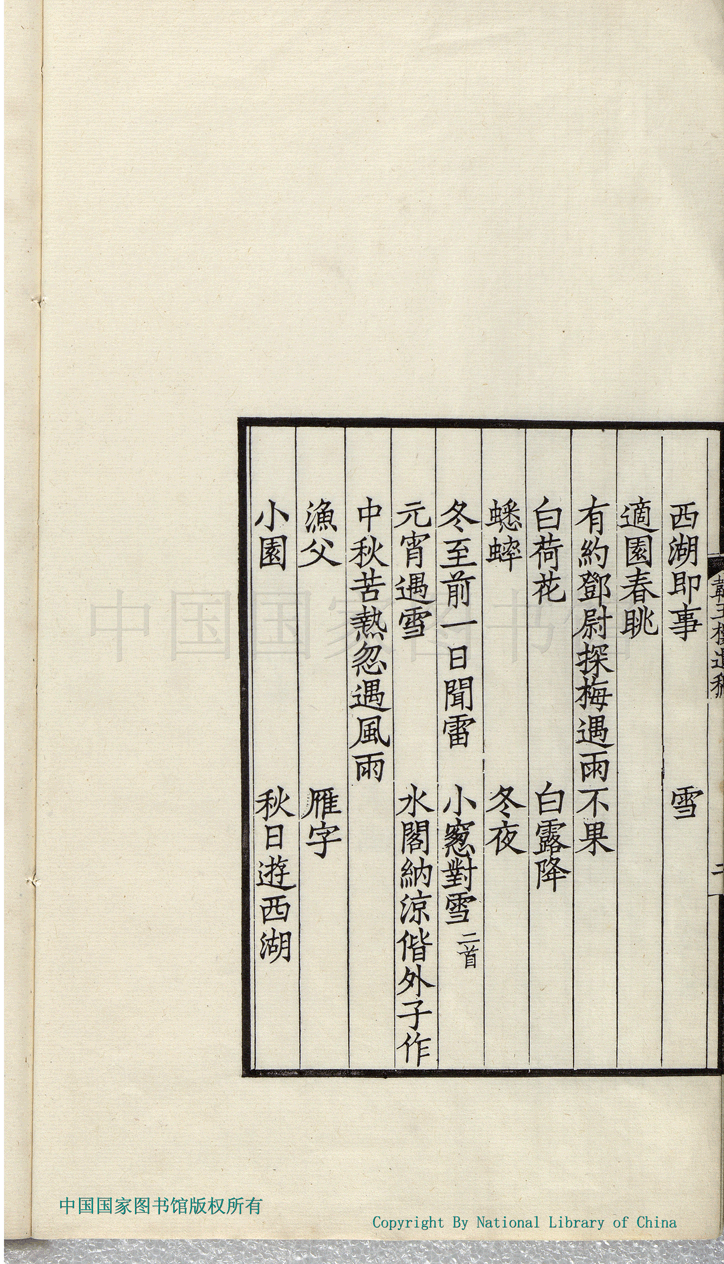 西湖即事　雪
適園春眺
有約鄧尉探梅遇雨不果
白荷花　白露降
蟋蟀　冬夜
冬至前一日聞雷　小窻對雪二首
元宵遇雪　水閣納涼偕外子作
中秋苦熱忽遇風雨
漁父　雁字
小園　秋日遊西湖
中国国家图书馆
中国国家图书馆版权所有
Copyright By National Library of China